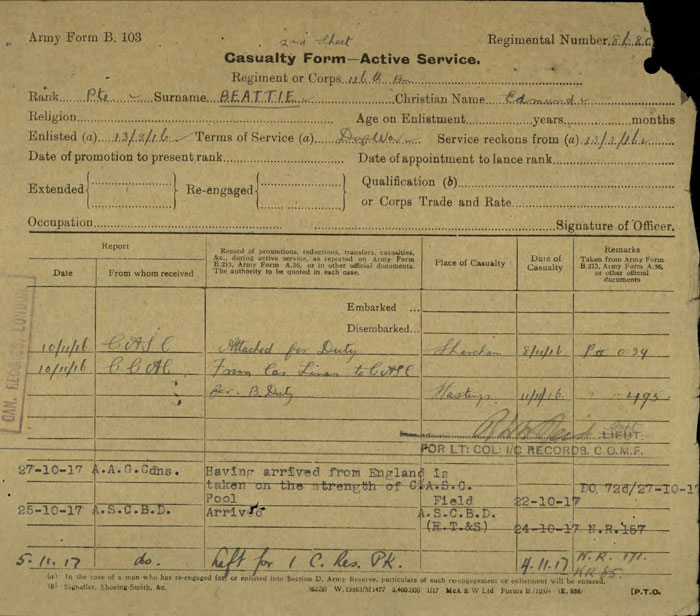 Army Form B. 103
2nd Sheet
Regimental Number
Casualty Form—Active Service.
Regiment or Corps
Rank Pte Surname BEATTIE Christian Name Edmund
Religion Age on Enlistment years months
Enlisted (a) 13/3/16 Terms of Service (a) Service reckons from (a) 13/3/16
Date of promotion to present rank Date of appointment to lance rank
Extended Re-engaged Qualification (b)
or Corps Trade and Rate
Occupation Signature of Officer.
Report
Date From whom received
Record of promotions, reductions, transfers, casualties, &c., during active service, as reported on Army Form B.213, Army Form A.36, or in other official documents. The authority to be quoted in each case.
Place of Casualty
Date of Casualty
Remarks
Taken from Army Form B.213, Army Form A.36, or other official documents
Embarked ...
Disembarked...
CAN. RECORDS, LONDON
10/11/16 C A S C Attached for Duty Shoreham 8/11/16
10/11/16 C C A C From Cas Lines to C A S C
for B. Duty Hastings 11/11/16
LIEUT:
FOR LT: COL: I/C RECORDS. C.O.M.F.
27-10-17 A.A.G.Cdns. Having arrived from England is
taken on the strength of C.A.S.C. DO 72d/27-10-17
Pool Field 22-10-17
25-10-17 A.S.C.B.D. Arrived A.S.C.B.D.
(H.T.&S) 24-10-17 N.R.157
5.11.17 do. Left for 1 C. Res. PK. 4.11.17 N.R. 171.
(a) In the case of a man who has re-engaged for, or enlisted into Section D, Army Reserve, particulars of such re-engagement or enlistment will be entered.
(b) Signaller, Shoeing-Smith, &c.
McA & W Ltd [P.T.O.